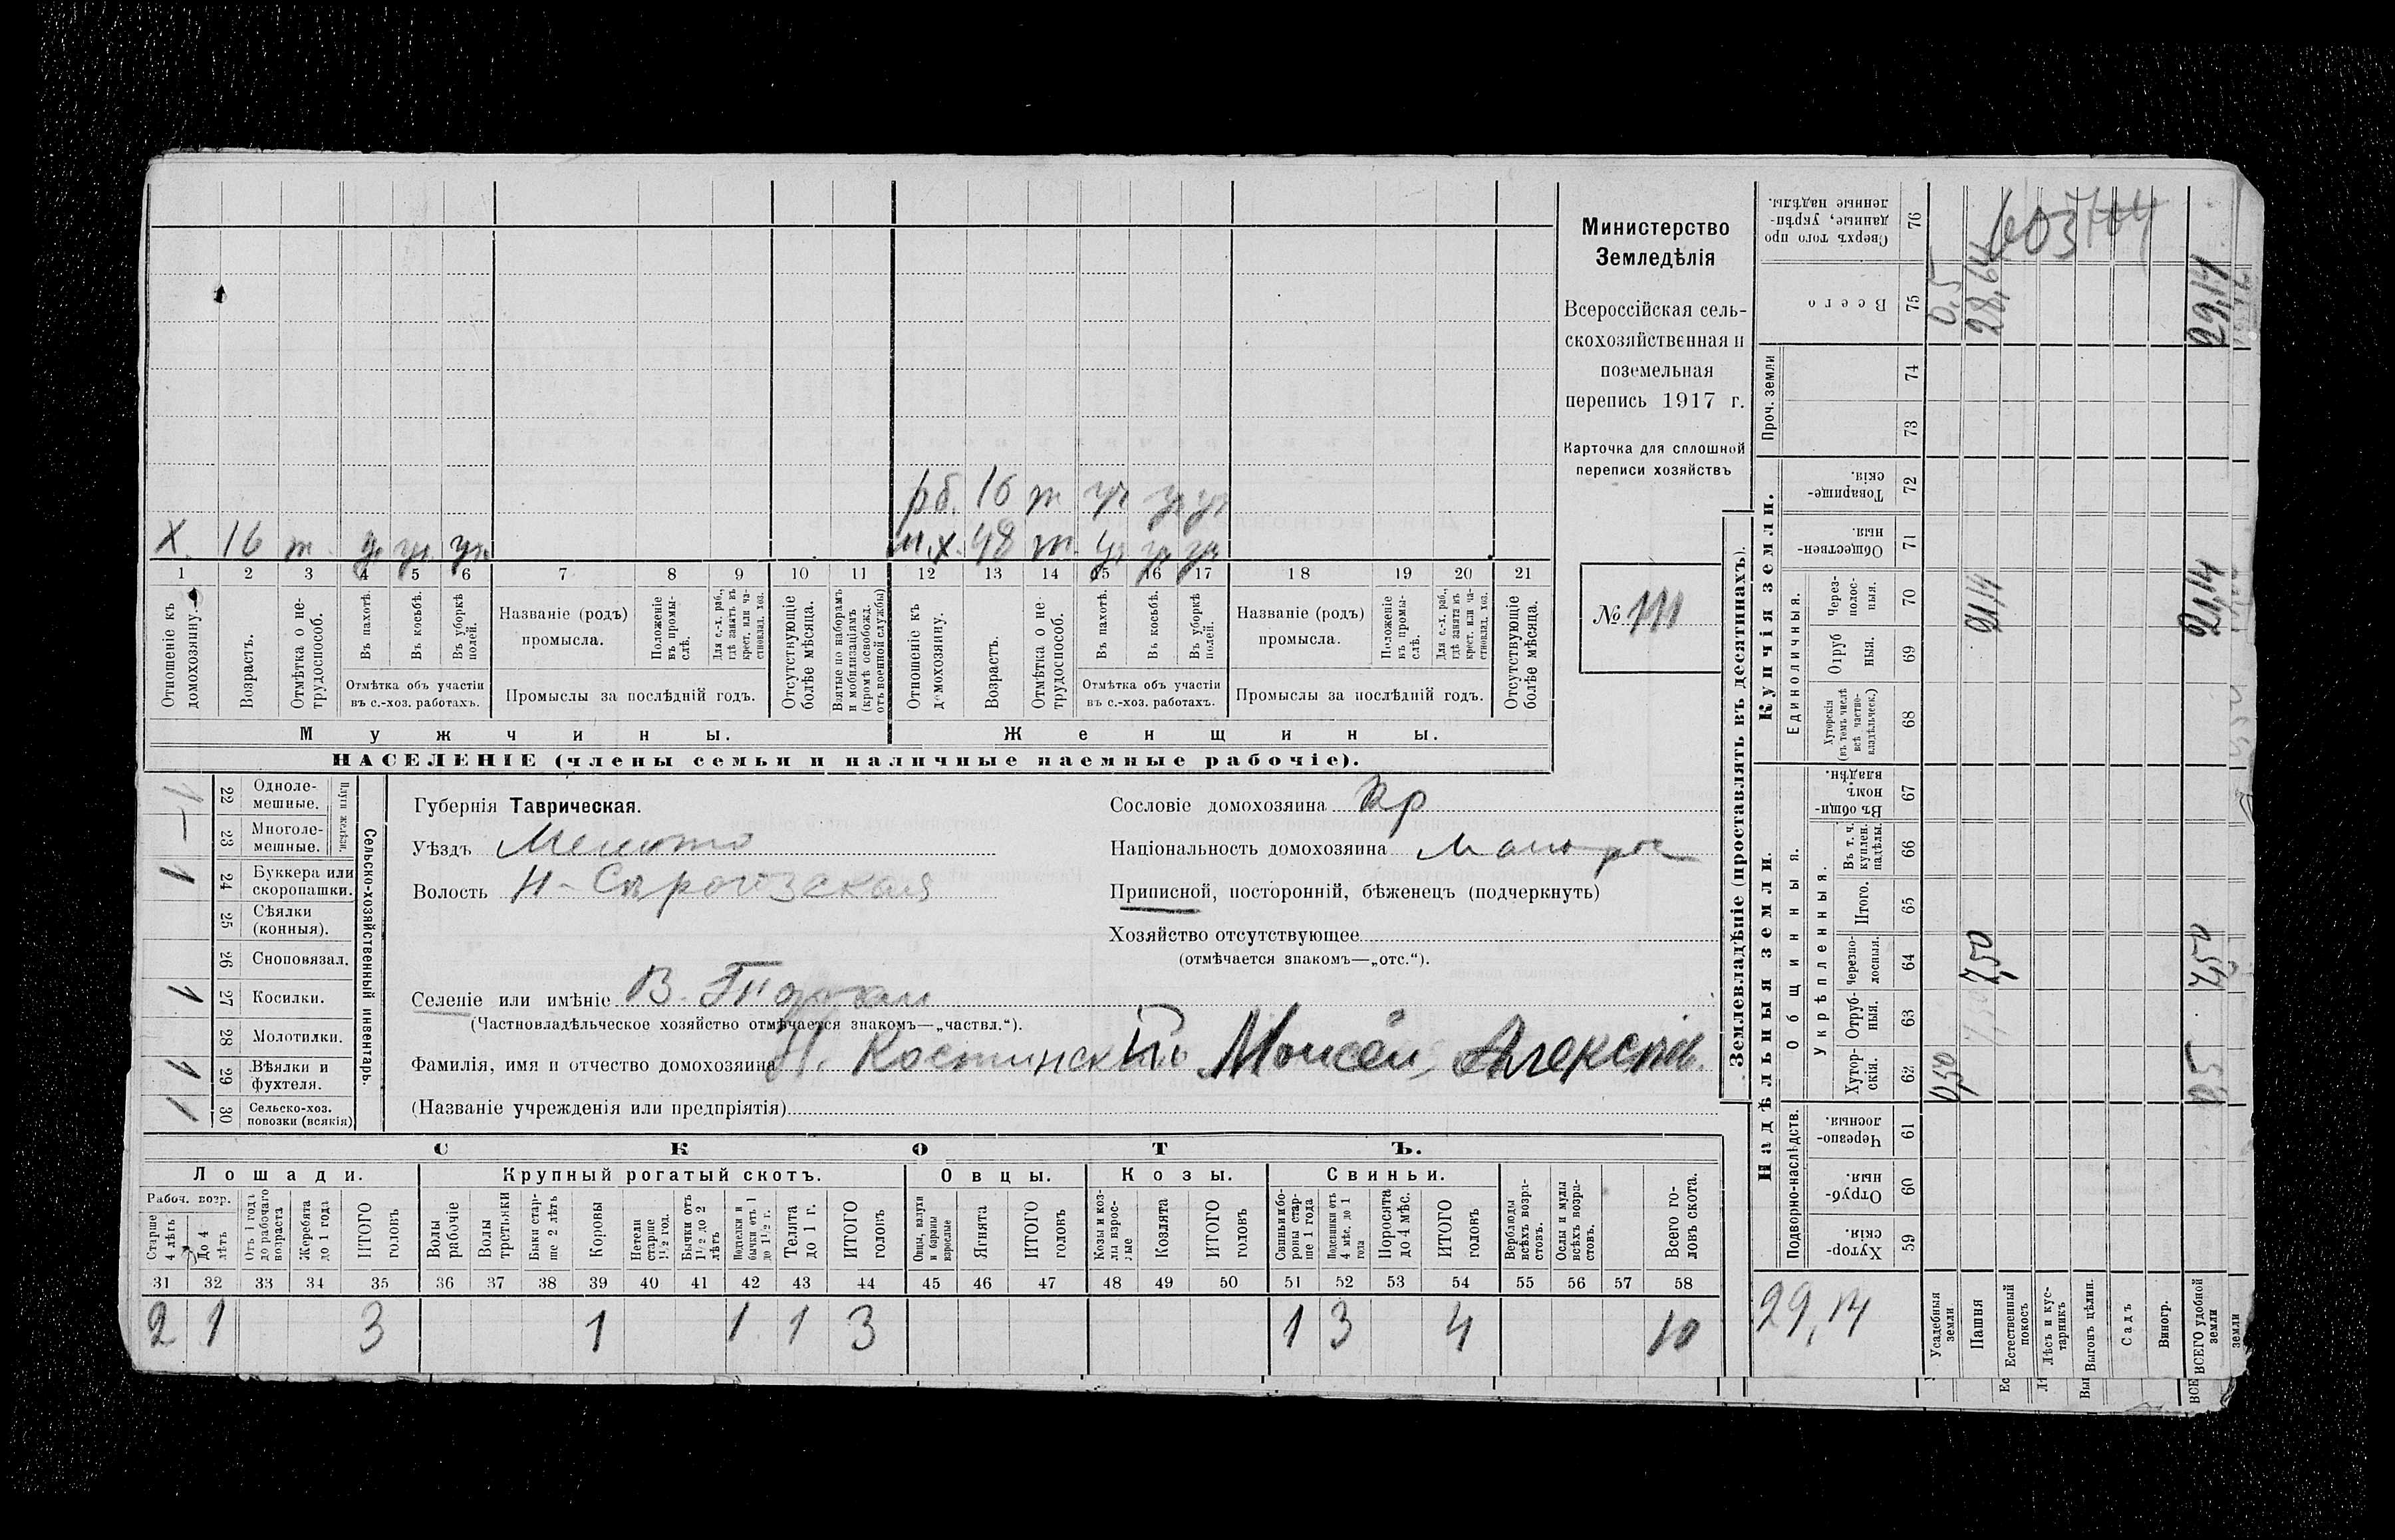 Министерство
Земледѣлія
Всероссійская сель-
скохозяйственная и
поземельная
перепись 1917 г.
Карточка для сплошной
переписи хозяйствъ
№ 111
рб. 16 т уч уч уч
х. 16 т. уч уч. уч. м.х. 48 т. уч уч уч
1 2 3 4 5 6 7 8 9 10 11 12 13 14 15 16 17 18 19 20 21
Отношеніе къ домохозяину.
Возрастъ.
Отмѣтка о не-трудоспособ.
Въ пахотѣ.
Въ косьбѣ.
Въ уборкѣ полей.
Отмѣтка объ участіи
въ с.-хоз. работахъ.
Названіе (родъ)
промысла.
Положеніе въ промы-слѣ.
Для с.-х. раб., гдѣ занятъ въ крест. или ча-стновлад. хоз.
Промыслы за послѣдній годъ.
Отсутствующіе болѣе мѣсяца.
Взятые по наборамъ и мобилизаціямъ (кромѣ освобожд. отъ военной службы)
Отношеніе къ домохозяину.
Возрастъ.
Отмѣтка о не-трудоспособ.
Въ пахотѣ.
Въ косьбѣ.
Въ уборкѣ полей.
Отмѣтка объ участіи
въ с.-хоз. работахъ.
Названіе (родъ)
промысла.
Положеніе въ промы-слѣ.
Для с.-х. раб., гдѣ занята въ крест. или ча-стновлад. хоз.
Промыслы за послѣдній годъ.
Отсутствующіе болѣе мѣсяца.
Мужчины. Женщины.
НАСЕЛЕНІЕ (члены семьи и наличные наемные рабочіе).
Сельско-хозяйственный инвентарь.
Плуги желѣзн.
22 Одноле-мешные.
1 23 Многоле-мешные.
1 24 Буккера или скоропашки.
25 Сѣялки (конныя).
26 Сноповязал.
1 27 Косилки.
28 Молотилки.
1 29 Вѣялки и фухтеля.
1 30 Сельско-хоз. повозки (всякія)
Губернія Таврическая.
Уѣздъ Мелито
Волость Н-Сѣрогозская
Селеніе или имѣніе В. Торгаи
(Частновладѣльческое хозяйство отмѣчается знакомъ—„частвл.“).
Фамилія, имя и отчество домохозяина Н. Костинскій Моисей Алексѣев.
(Названіе учрежденія или предпріятія)
Сословіе домохозяина кр
Національность домохозяина Малорос
Приписной, посторонній, бѣженецъ (подчеркнуть)
Хозяйство отсутствующее
(отмѣчается знакомъ—„отс.“).
СКОТЪ.
Лошади. Крупный рогатый скотъ. Овцы. Козы. Свиньи.
Рабоч. возр.
Старше 4 лѣтъ
До 4 лѣтъ
Отъ 1 года до рабочаго возраста
Жеребята до 1 года
ИТОГО головъ
Волы рабочіе
Волы третьяки
Быки стар-ше 2 лѣтъ
Коровы
Нетели старше 1½ год.
Бычки отъ 1½ до 2 лѣтъ
Подтелки и бычки отъ 1 до 1½ г.
Телята до 1 г.
ИТОГО головъ
Овцы, валухи и бараны взрослые
Ягнята
ИТОГО головъ
Козы и коз-лы взрос-лые
Козлята
ИТОГО головъ
Свиньи и бо-ровы стар-ше 1 года
Подсвинки отъ 4 мѣс. до 1 года
Поросята до 4 мѣс.
ИТОГО головъ
Верблюды всѣхъ возра-стовъ.
Ослы и мулы всѣхъ возра-стовъ.
Всего го-ловъ скота.
31 32 33 34 35 36 37 38 39 40 41 42 43 44 45 46 47 48 49 50 51 52 53 54 55 56 57 58
2 1 3 1 1 1 3 1 3 4 10
Землевладѣніе (проставлять въ десятинахъ).
Надѣльныя земли. Купчія земли.
Подворно-наслѣдств. Общинныя. Единоличныя. Проч. земли
Укрѣпленныя.
Хутор-скія. 59
Отруб-ныя. 60
Черезпо-лосныя. 61
Хутор-скія. 62
Отруб-ныя. 63
Черезпо-лосныя. 64
Итого. 65
Въ т. ч. куплен. надѣлы. 66
Въ общи-номъ владѣн. 67
Хуторскія (въ томъ числѣ всѣ частно-владѣльческ.) 68
Отруб ныя. 69
Через-полос-ныя. 70
Обществен-ныя. 71
Товарище-скія. 72
73
74
Всего 75
Сверхъ того про данные, укрѣп-ленные надѣлы. 76
29,14
Усадебныя земли 0,50 0,5
Пашня 7,50 21,14 28,64
Естественный покосъ
Лѣсъ и кус-тарникъ
Выгонъ цѣлин.
Садъ
Виногр.
ВСЕГО удобной земли 0,5 7,50 21,14 29,14
земли
603
704